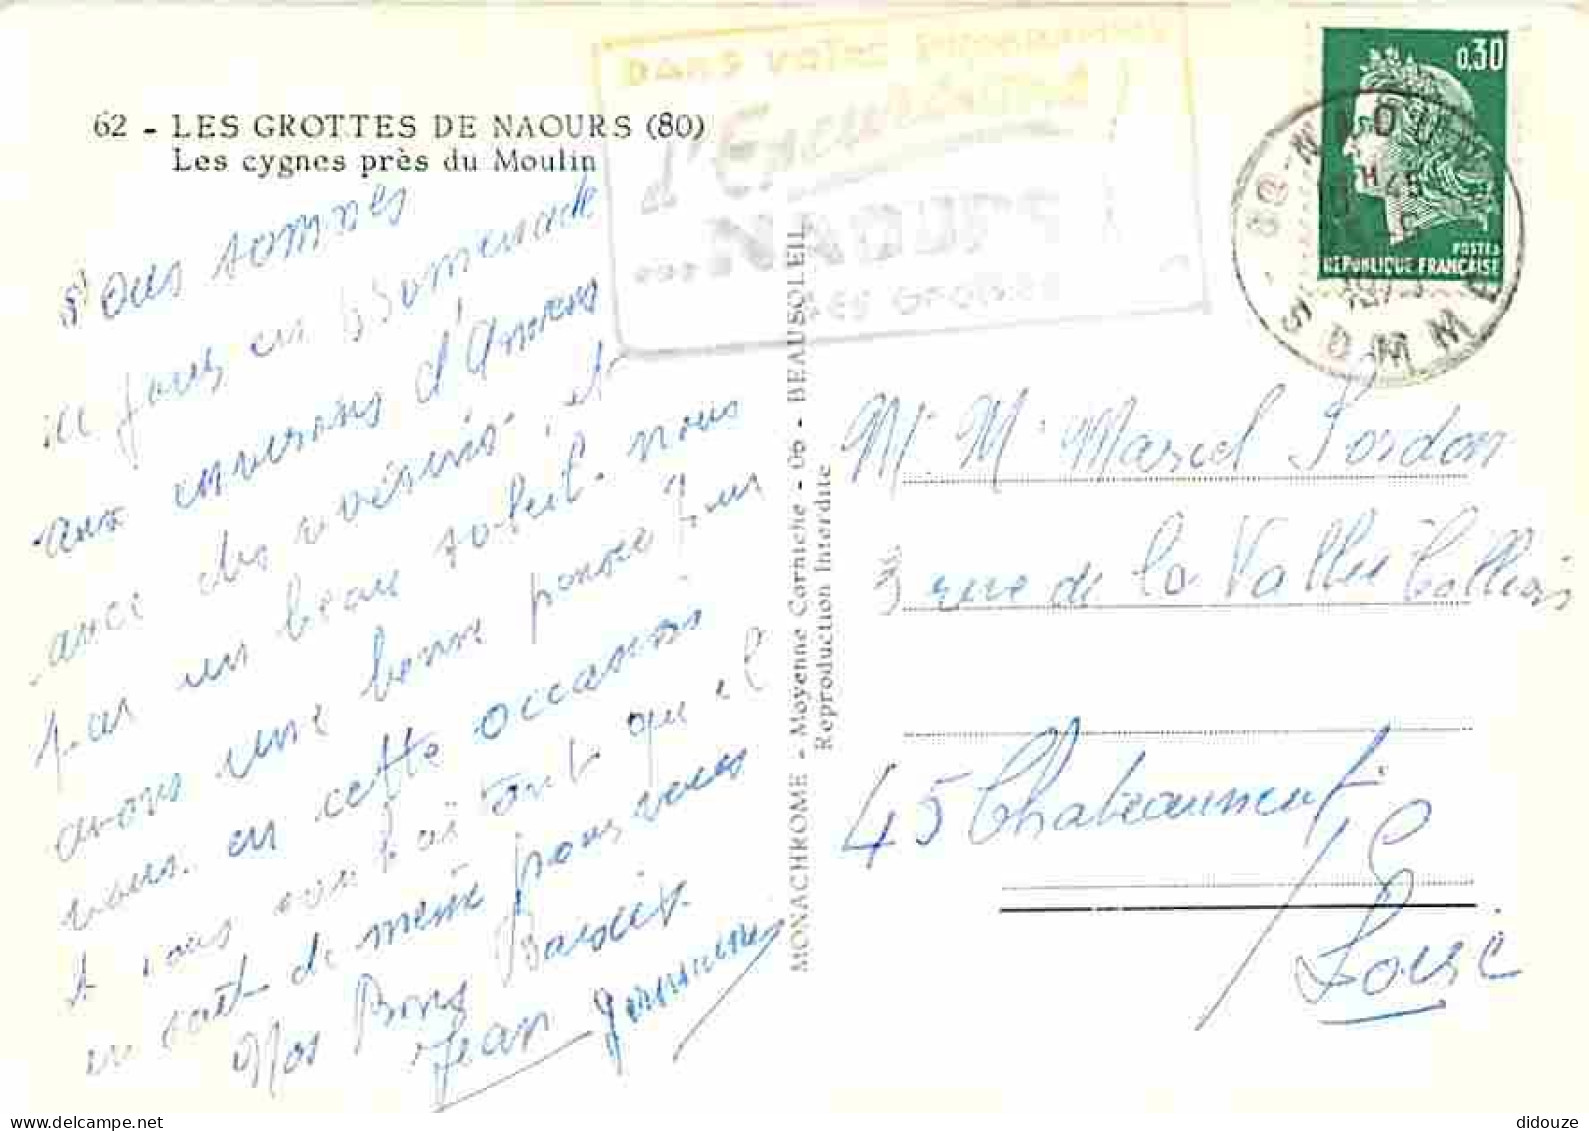 62 - LES GROTTES DE NAOURS (80)
Les cygnes près du Moulin
DANS VOTRE PROGRAMME
d'Excursions
... NAOURS
SES GROTTES
0,30
POSTES
RÉPUBLIQUE FRANÇAISE
80 - NAOURS
SOMME
Nous sommes
ici pour en promenade
aux environs d'Amiens
avec des voisins et
par un beau soleil. nous
avons une bonne pensée pour
vous. en cette occasion
tant que
en soit de même pour vous
Nos Bons Baisers
Jean Germaine
MONACHROME - Moyenne Corniche - 06 - BEAUSOLEIL
Reproduction Interdite
Mr M. Marcel
3 rue de la Vallée
45 Chateauneuf
s/
Loire
www.delcampe.net
didouze